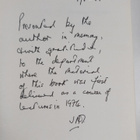 Presented by the
author in memory,
with gratitude,
to the department
where the material
of this book was first
delivered as a course of
lectures in 1976.